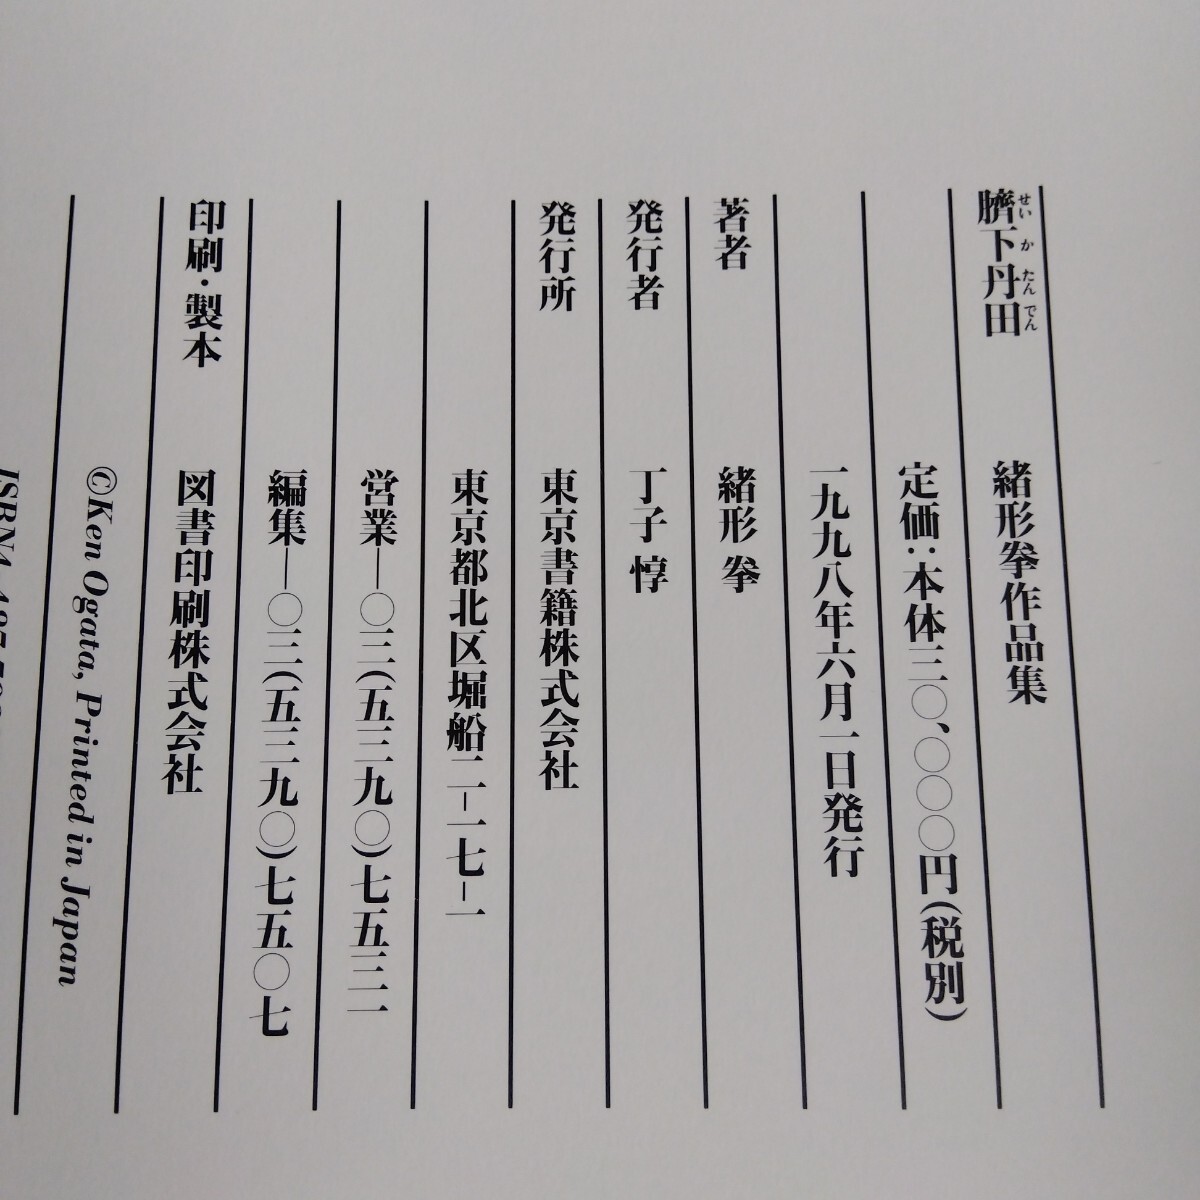 臍下丹田 緒形拳作品集
せいかたんでん
定価：本体三〇、〇〇〇円(税別)
一九九八年六月一日発行
著者 緒形 拳
発行者 丁子 惇
発行所 東京書籍株式会社
東京都北区堀船二-一七-一
営業—〇三(五三九〇)七五三一
編集—〇三(五三九〇)七五〇七
印刷・製本 図書印刷株式会社
©Ken Ogata, Printed in Japan